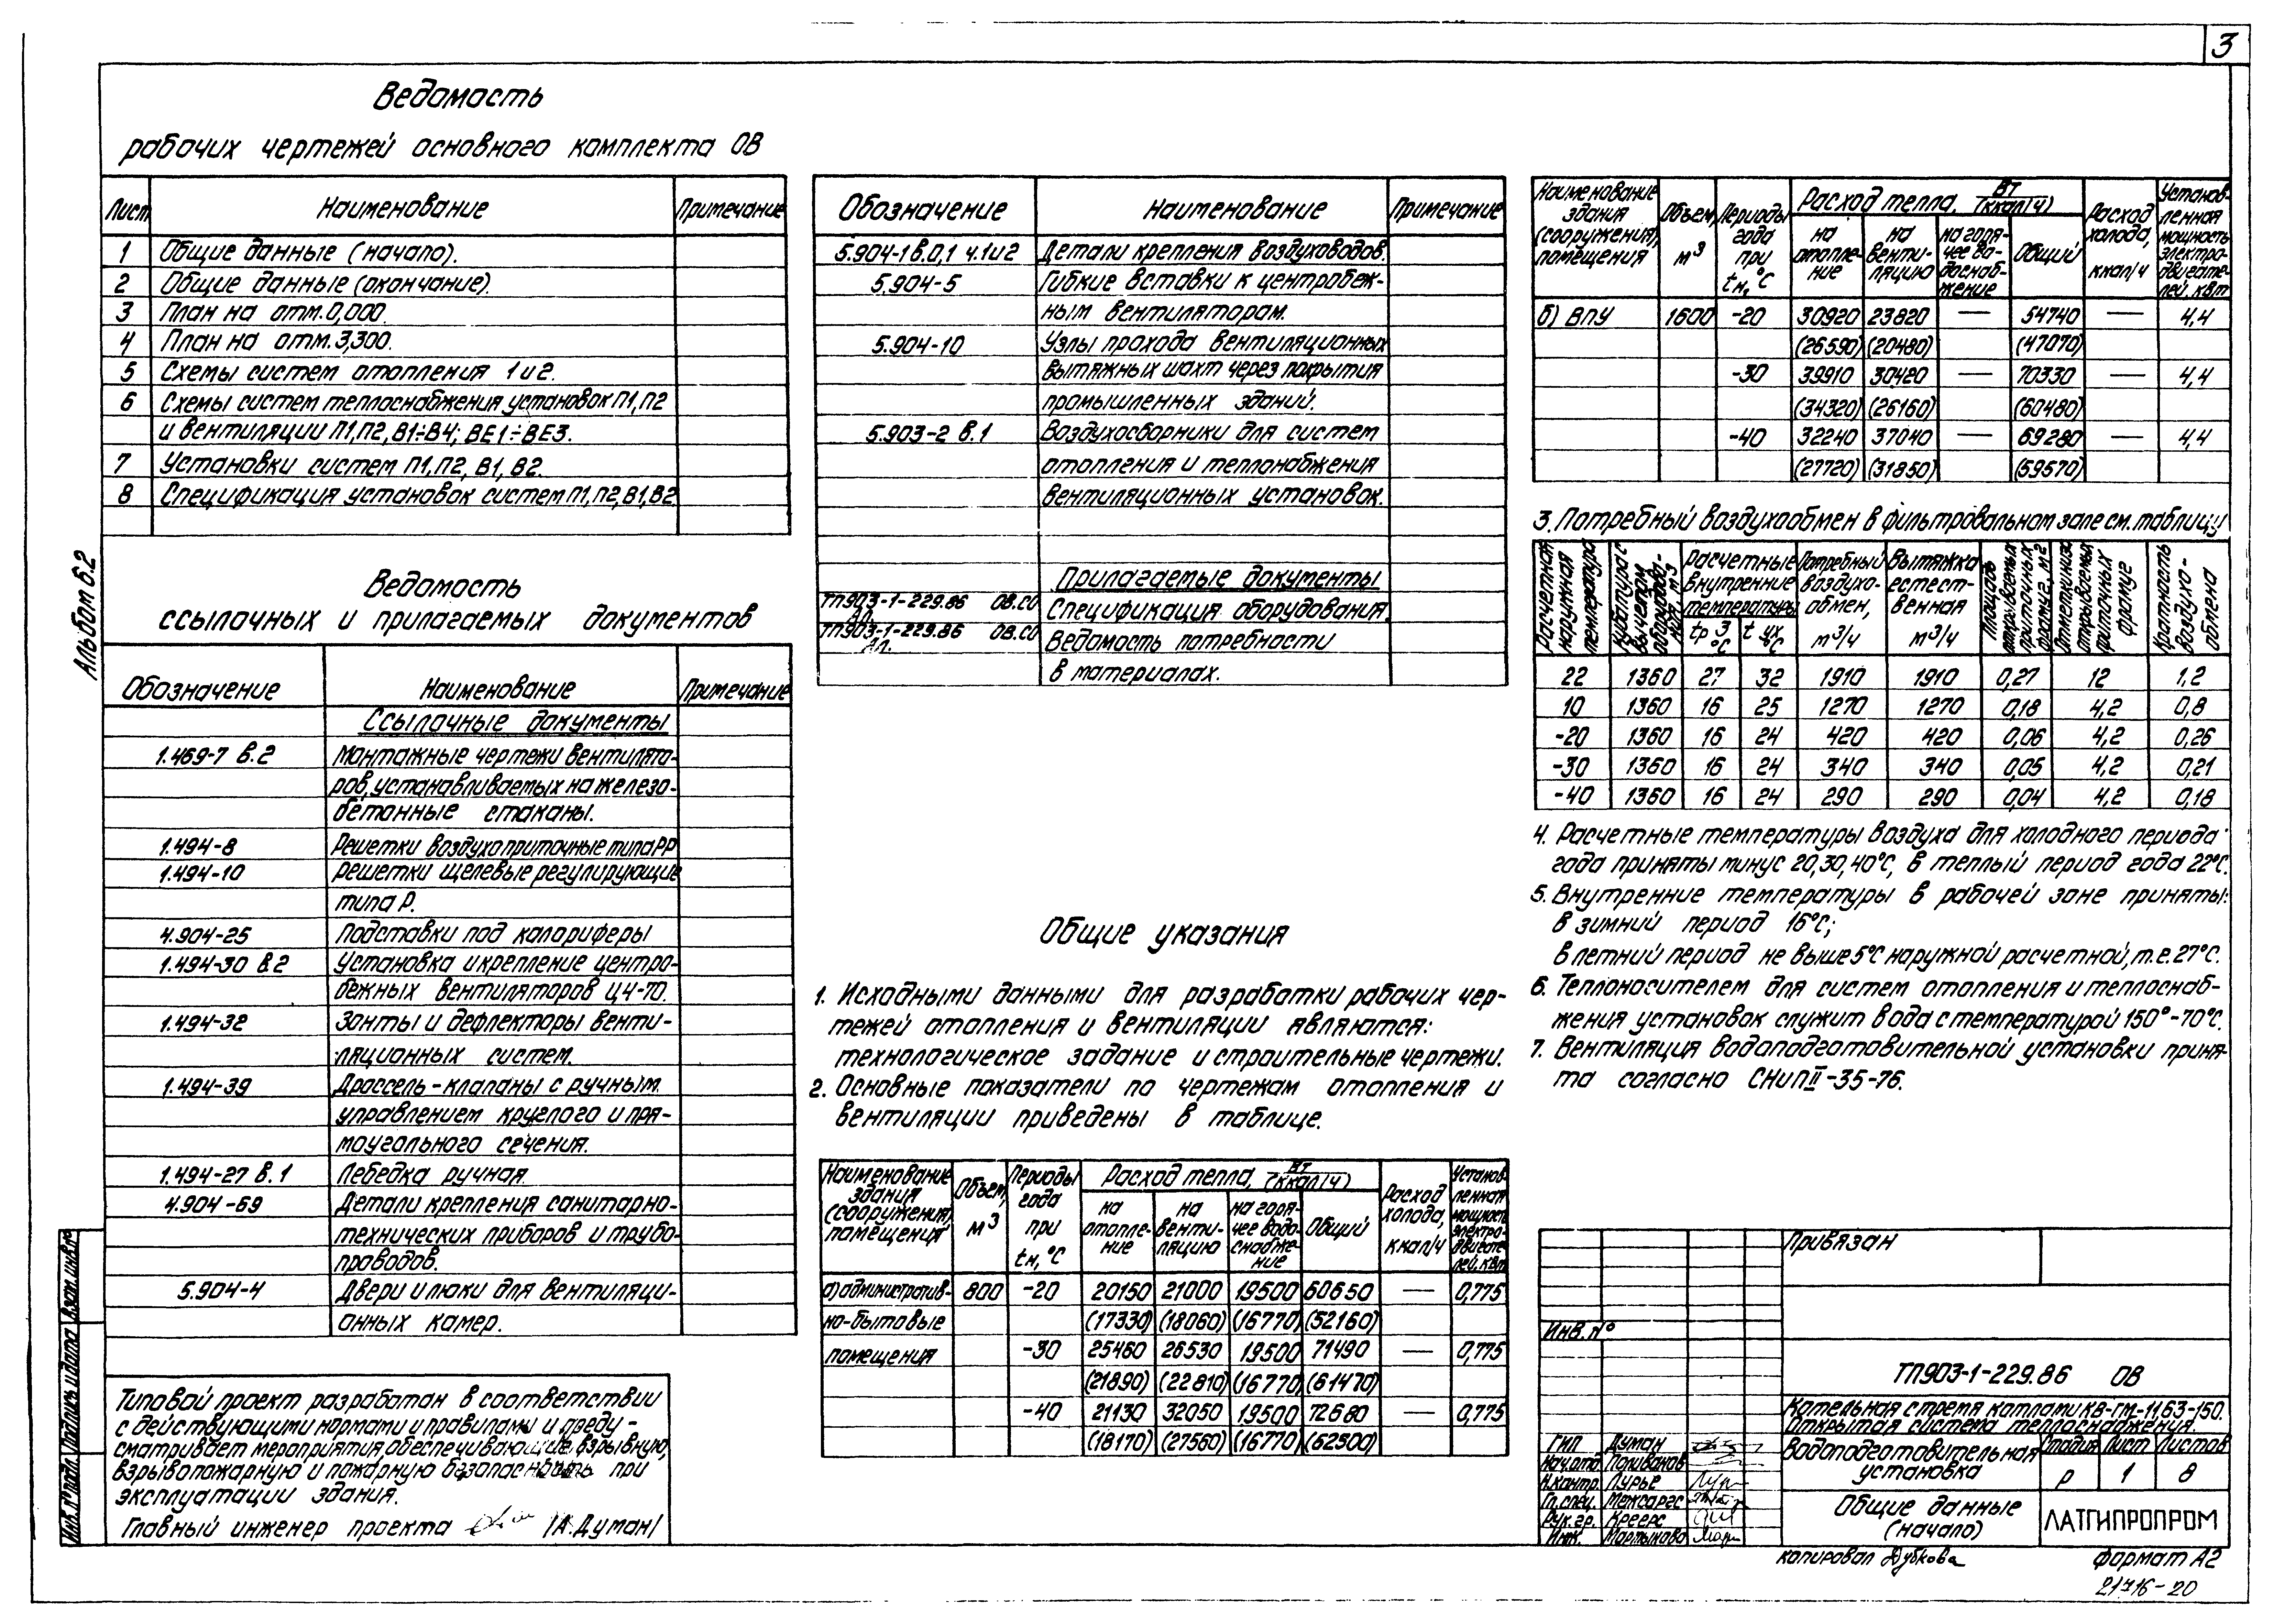 3
Ведомость
рабочих чертежей основного комплекта ОВ
Лист Наименование Примечание
1 Общие данные (начало).
2 Общие данные (окончание).
3 План на отм. 0,000.
4 План на отм. 3,300.
5 Схемы систем отопления 1 и 2.
6 Схемы систем теплоснабжения установок П1, П2
и вентиляции П1, П2, В1÷В4; ВЕ1÷ВЕ3.
7 Установки систем П1, П2, В1, В2.
8 Спецификация установок систем П1, П2, В1, В2
Альбом 6.2
Ведомость
ссылочных и прилагаемых документов
Обозначение Наименование Примечание
Ссылочные документы
1.469-7 в.2 Монтажные чертежи вентилято-
ров, устанавливаемых на железо-
бетонные стаканы.
1.494-8 Решетки воздухоприточные типа РР
1.494-10 Решетки щелевые регулирующие
типа Р.
4.904-25 Подставки под калориферы
1.494-30 в.2 Установка и крепление центро-
бежных вентиляторов Ц4-70.
1.494-32 Зонты и дефлекторы венти-
ляционных систем.
1.494-39 Дроссель-клапаны с ручным
управлением круглого и пря-
моугольного сечения.
1.494-27 в.1 Лебедка ручная
4.904-69 Детали крепления санитарно-
технических приборов и трубо-
проводов.
5.904-4 Двери и люки для вентиляци-
онных камер.
Типовой проект разработан в соответствии
с действующими нормами и правилами и преду-
сматривает мероприятия, обеспечивающие взрывную,
взрывопожарную и пожарную безопасность при
эксплуатации здания.
Главный инженер проекта /А. Думан/
Инв. № подл. Подпись и дата Взам. инв. №
Обозначение Наименование Примечание
5.904-1 в.0,1 ч.1 и 2 Детали крепления воздуховодов.
5.904-5 Гибкие вставки к центробеж-
ным вентиляторам.
5.904-10 Узлы прохода вентиляционных
вытяжных шахт через покрытия
промышленных зданий.
5.903-2 в.1 Воздухосборники для систем
отопления и теплонабжения
вентиляционных установок.
Прилагаемые документы
ТП903-1-229.86 ОВ.СО Спецификация оборудования.
Ал.
ТП903-1-229.86 ОВ.СО Ведомость потребности
Ал.
в материалах.
Общие указания
1. Исходными данными для разработки рабочих чер-
тежей отопления и вентиляции являются:
технологическое задание и строительные чертежи.
2. Основные показатели по чертежам отопления и
вентиляции приведены в таблице.
Наименование здания (сооружения), помещения Объем, м³ Периоды года при tн, °С Расход тепла, Вт (ккал/ч) Расход холода, ккал/ч Установленная мощность электродвигателей, кВт
на отопление на вентиляцию на горячее водоснабжение Общий
а) административ- 800 -20 20150 21000 19500 60650 — 0,775
но-бытовые (17330) (18060) (16770) (52160)
помещения -30 25460 26530 19500 71490 — 0,775
(21890) (22810) (16770) (61470)
-40 21130 32050 19500 72680 — 0,775
(18170) (27560) (16770) (62500)
Наименование здания (сооружения), помещения Объем, м³ Периоды года при tн, °С Расход тепла, Вт (ккал/ч) Расход холода, ккал/ч Установ-ленная мощность электро-двигате-лей, кВт
на отопле-ние на венти-ляцию на горя-чее во-доснаб-жение Общий
б) ВПУ 1600 -20 30920 23820 — 54740 — 4,4
(26590) (20480) (47070)
-30 39910 30420 — 70330 — 4,4
(34320) (26160) (60480)
-40 32240 37040 — 69280 — 4,4
(27720) (31850) (59570)
3. Потребный воздухообмен в фильтровальном зале см. таблицу
Расчетная наружная температура Кубатура с вычетом оборудова-ния, м³ Расчетные внутренние температуры tр.з °С tух °С Потребный воздухо-обмен, м³/ч Вытяжка естест-венная м³/ч Площадь открываемых приточных фрамуг, м² Отметка низа открываемых приточных фрамуг Кратность воздухо-обмена
22 1360 27 32 1910 1910 0,27 12 1,2
10 1360 16 25 1270 1270 0,18 4,2 0,8
-20 1360 16 24 420 420 0,06 4,2 0,26
-30 1360 16 24 340 340 0,05 4,2 0,21
-40 1360 16 24 290 290 0,04 4,2 0,18
4. Расчетные температуры воздуха для холодного периода
года приняты минус 20, 30, 40°С, в теплый период года 22°С.
5. Внутренние температуры в рабочей зоне приняты:
в зимний период 16°С;
в летний период не выше 5°С наружной расчетной, т.е. 27°С.
6. Теплоносителем для систем отопления и теплоснаб-
жения установок служит вода с температурой 150°-70°С.
7. Вентиляция водоподготовительной установки приня-
та согласно СНиП II-35-76.
Привязан
Инв. №
ТП903-1-229.86 ОВ
Котельная с тремя котлами КВ-ГМ-11,63-150.
Открытая система теплоснабжения.
ГИП Думан
Нач. отд. Поливанов
Н. контр. Лурье
Гл. спец. Межсаргс
Рук. гр. Креерс
Инж. Мартынова
Водоподготовительная
установка
Стадия Лист Листов
Р 1 8
Общие данные
(начало)
ЛАТГИПРОПРОМ
копировал Дубкова
формат А2
21716-20